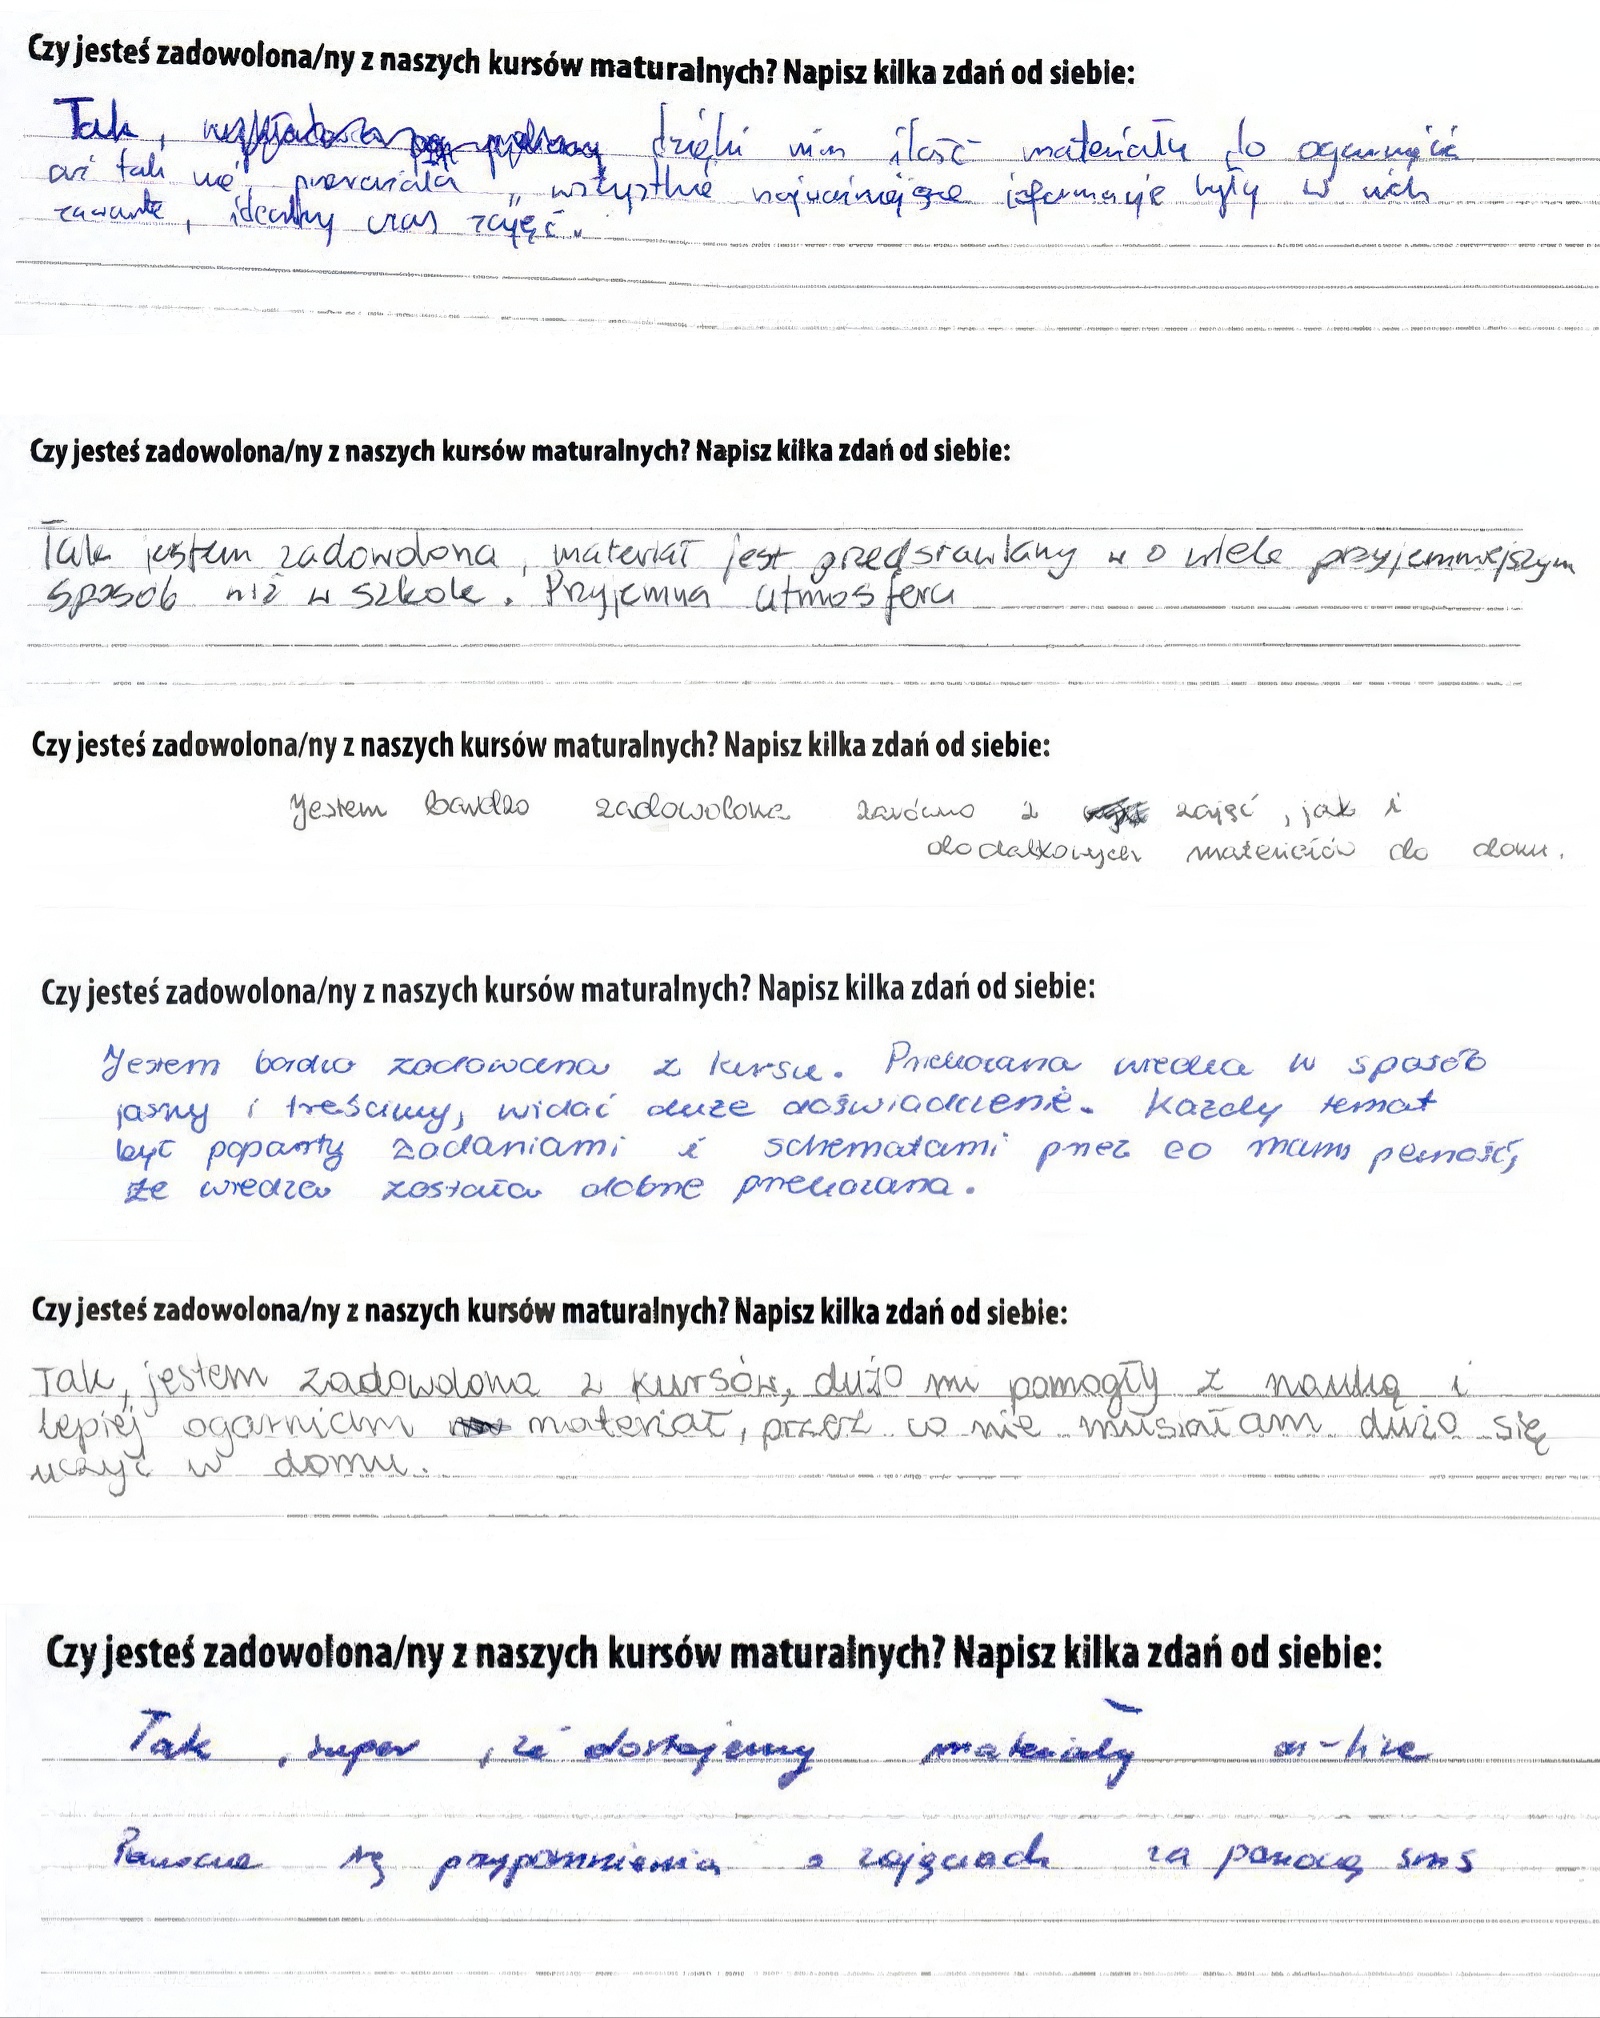 Czy jesteś zadowolona/ny z naszych kursów maturalnych? Napisz kilka zdań od siebie:
Tak, dzięki nim ilość materiału do ogarnięcia
aż tak nie przerażała, wszystkie najważniejsze informacje były w nich
zawarte, idealny czas zajęć.
Czy jesteś zadowolona/ny z naszych kursów maturalnych? Napisz kilka zdań od siebie:
Tak jestem zadowolona, materiał jest przedstawiany w o wiele przyjemniejszym
sposób niż w szkole. Przyjemna atmosfera
Czy jesteś zadowolona/ny z naszych kursów maturalnych? Napisz kilka zdań od siebie:
Jestem bardzo zadowolona zarówno z zajęć, jak i
dodatkowych materiałów do domu.
Czy jesteś zadowolona/ny z naszych kursów maturalnych? Napisz kilka zdań od siebie:
Jestem bardzo zadowolona z kursu. Przekazana wiedza w sposób
jasny i treściwy, widać duże doświadczenie. Każdy temat
był poparty zadaniami i schematami przez co mam pewność,
że wiedza została dobrze przekazana.
Czy jesteś zadowolona/ny z naszych kursów maturalnych? Napisz kilka zdań od siebie:
Tak, jestem zadowolona z kursów, dużo mi pomogły z nauką i
lepiej ogarniam materiał, przez co nie musiałam dużo się
uczyć w domu.
Czy jesteś zadowolona/ny z naszych kursów maturalnych? Napisz kilka zdań od siebie:
Tak, super, że dostajemy materiały on-line
Pomocne są przypomnienia o zajęciach za pomocą sms